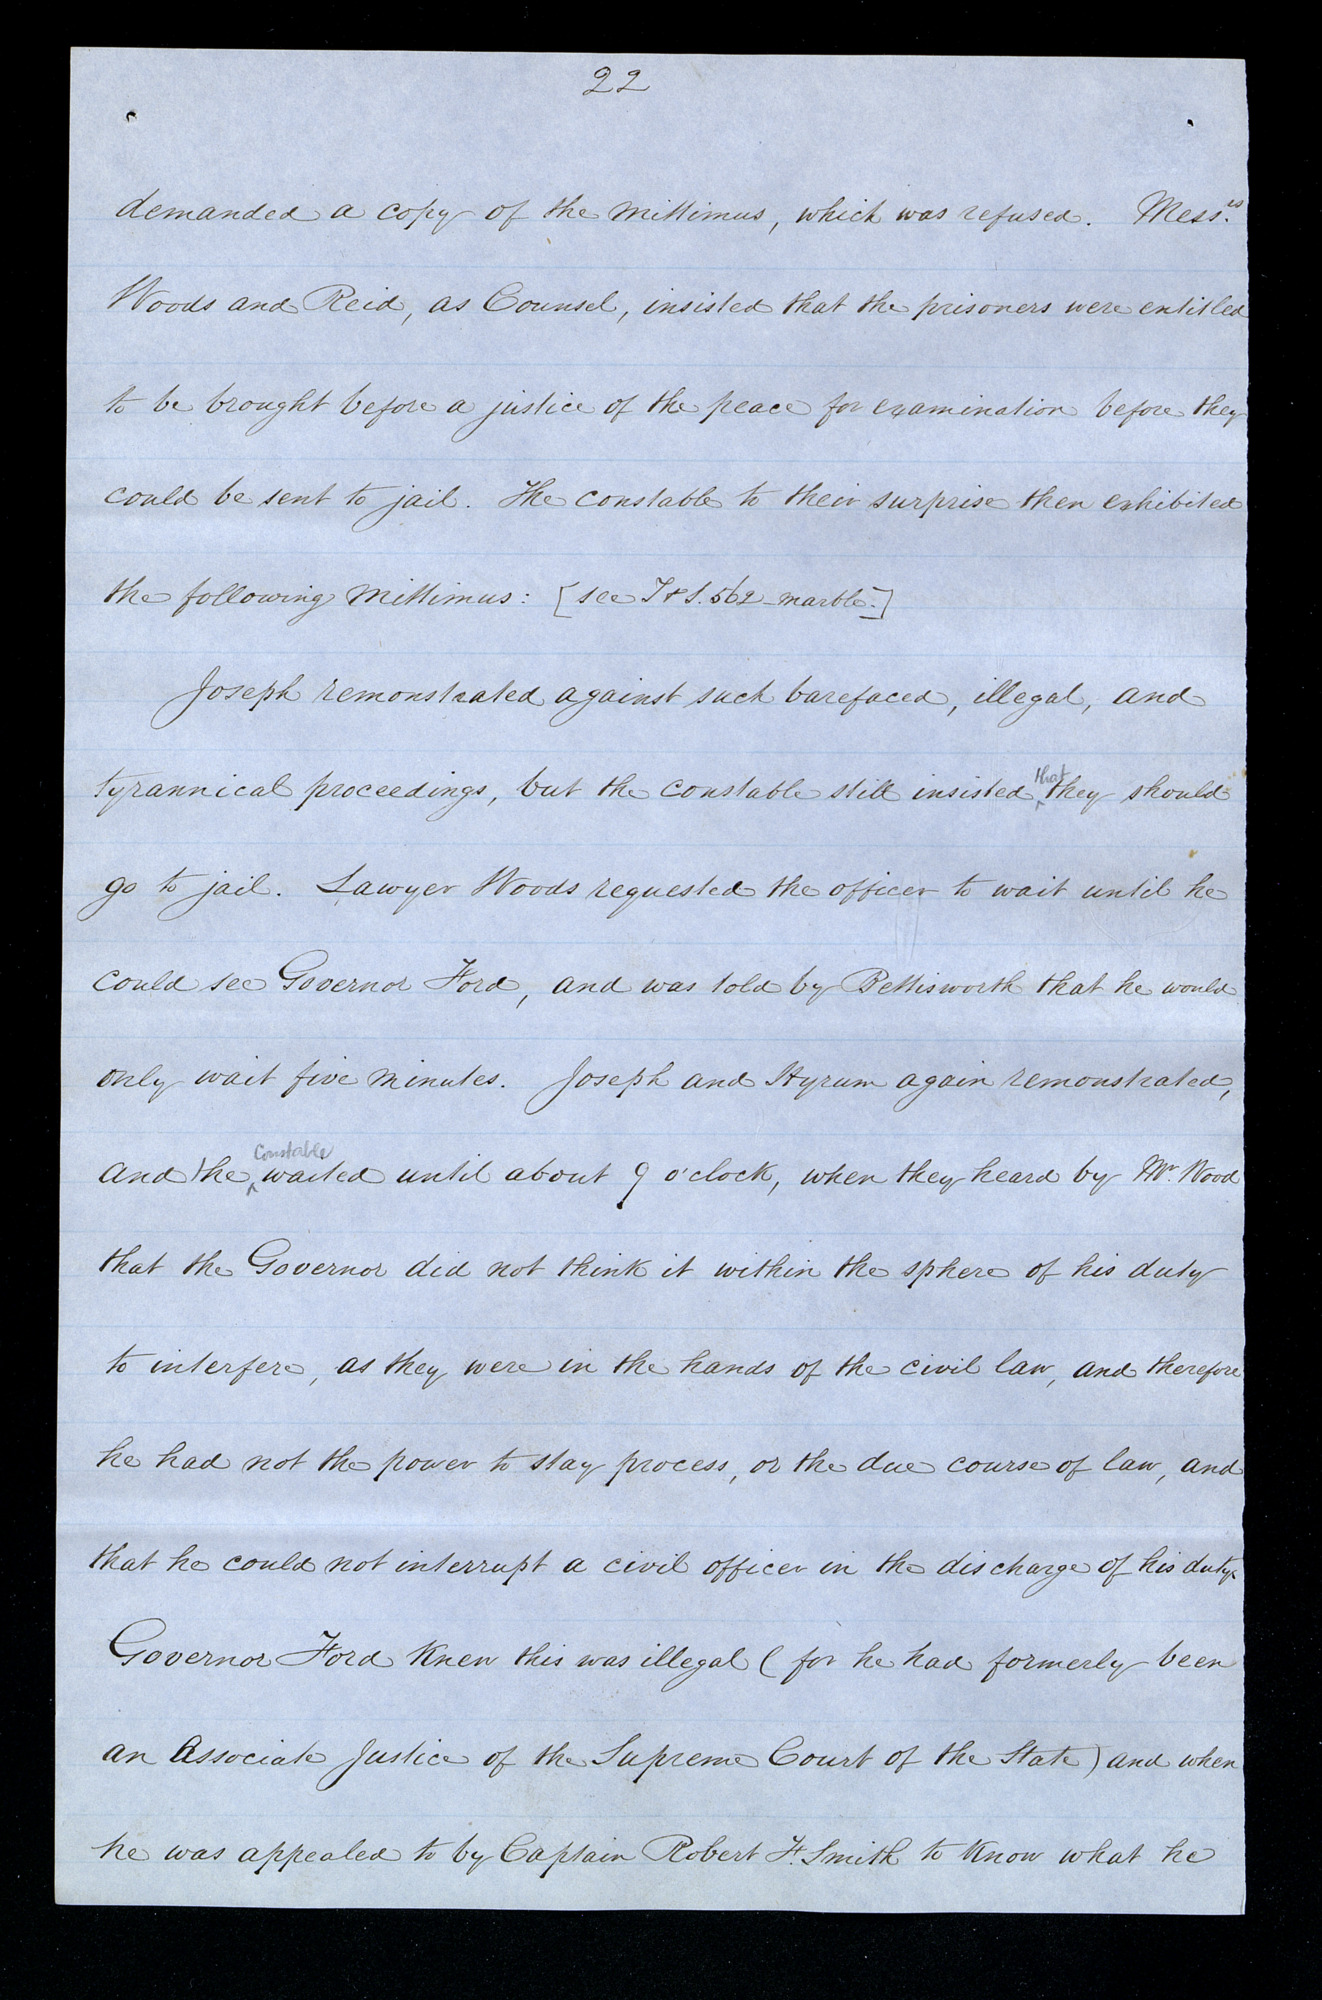 22
demanded a copy of the mittimus, which was refused. Mess.rs
Woods and Reid, as Counsel, insisted that the prisoners were entitled
to be brought before a justice of the peace for examination before they
could be sent to jail. The constable to their surprise then exhibited
the following mittimus: [see T & S. 562 - marble.]
Joseph remonstrated against such barefaced, illegal, and
tyrannical proceedings, but the constable still insisted ^that they should
go to jail. Lawyer Woods requested the officer to wait until he
could see Governor Ford, and was told by Bettisworth that he would
only wait five minutes. Joseph and Hyrum again remonstrated,
and the ^Constable waited until about 9 o'clock, when they heard by Mr. Wood
that the Governor did not think it within the sphere of his duty
to interfere, as they were in the hands of the civil law, and therefore
he had not the power to stay process, or the due course of law, and
that he could not interrupt a civil officer in the discharge of his duty.
Governor Ford knew this was illegal (for he had formerly been
an Associate Justice of the Supreme Court of the State) and when
he was appealed to by Captain Robert F. Smith to know what he